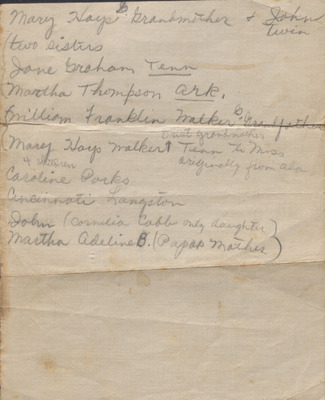 Mary Hays B Grandmother & John
twin
two sisters
Jane Graham Tenn
Martha Thompson Ark.
William Franklin Walker G Grandfather
Great grandmother
Mary Hays Walker Tenn to Miss
& children originally from Ala
Caroline Parks
Cincinnati Langston
John (Cornelia Cobb only daughter)
Martha Adeline B. (Papas Mother)